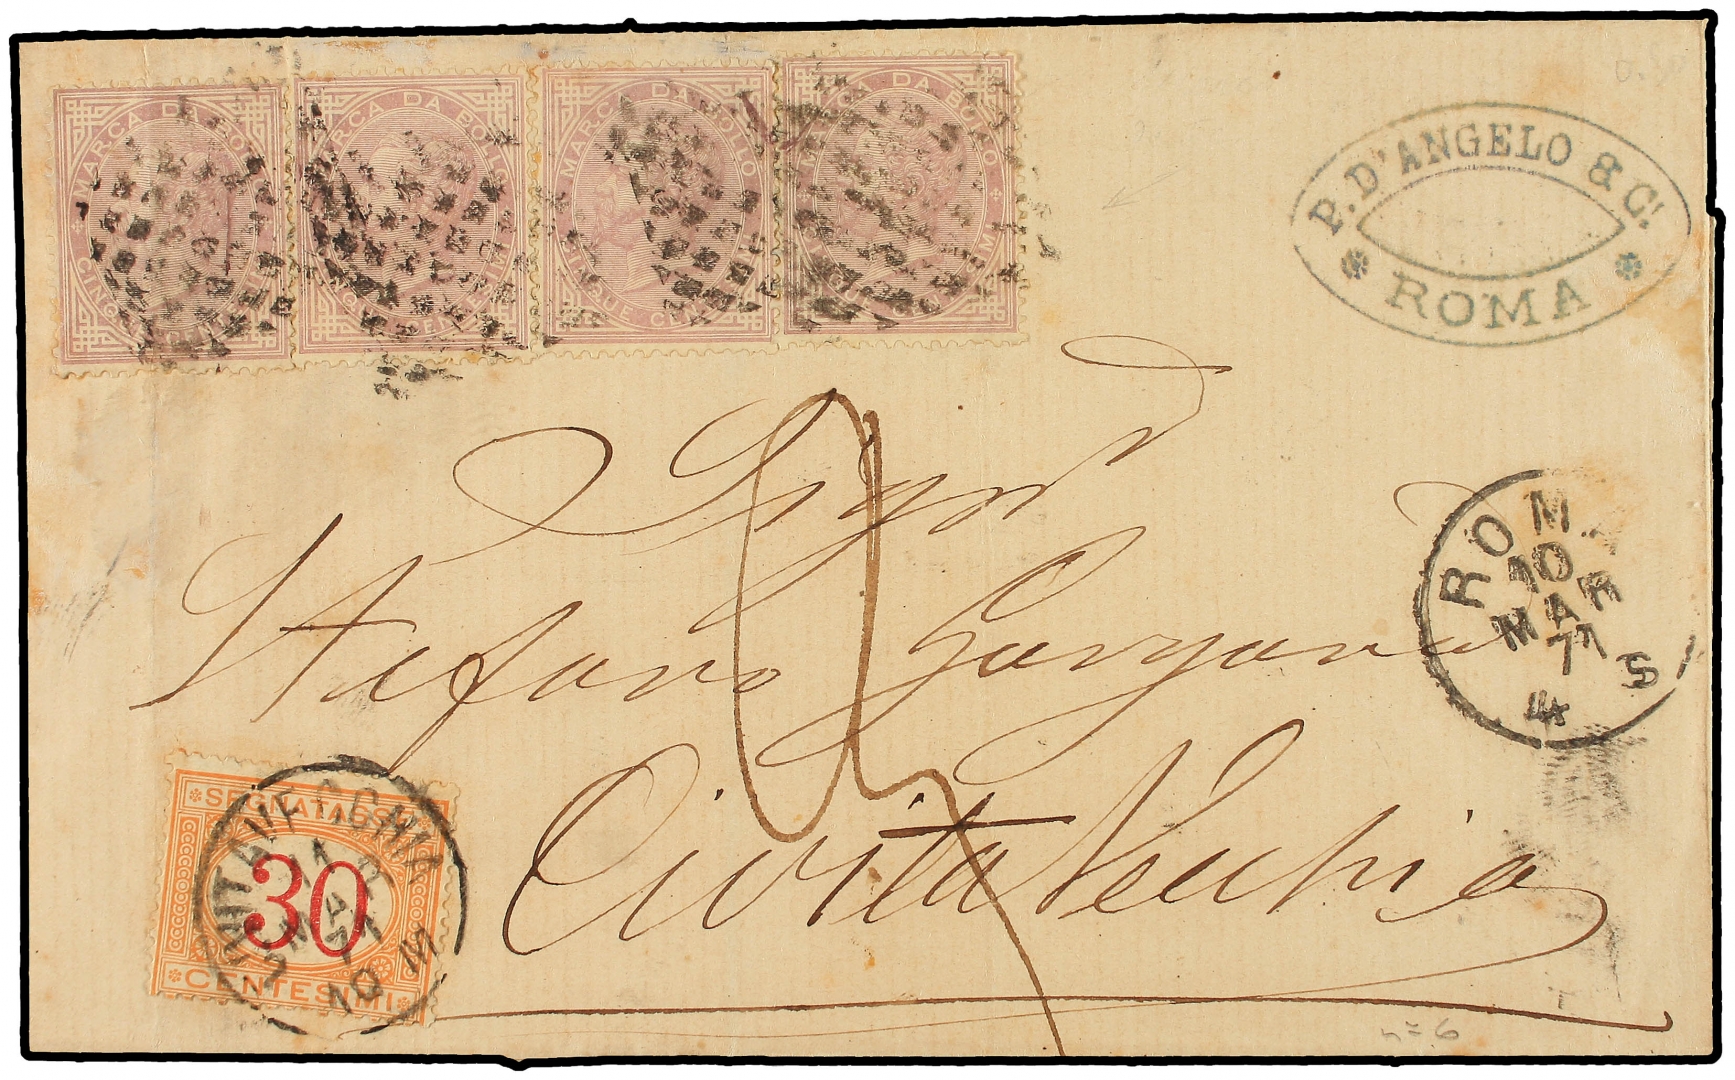 MARCA DA BOLLO
CINQUE CENTESIMI
MARCA DA BOLLO
CINQUE CENTESIMI
MARCA DA BOLLO
CINQUE CENTESIMI
MARCA DA BOLLO
CINQUE CENTESIMI
P. D'ANGELO & C.
ROMA
Sigr
Stefano
Civita Vecchia
ROMA
10
MAR
71
4 S
SEGNATASSE
30
CENTESIMI
CIVITAVECCHIA
11
MAR
71
10 M
n=6